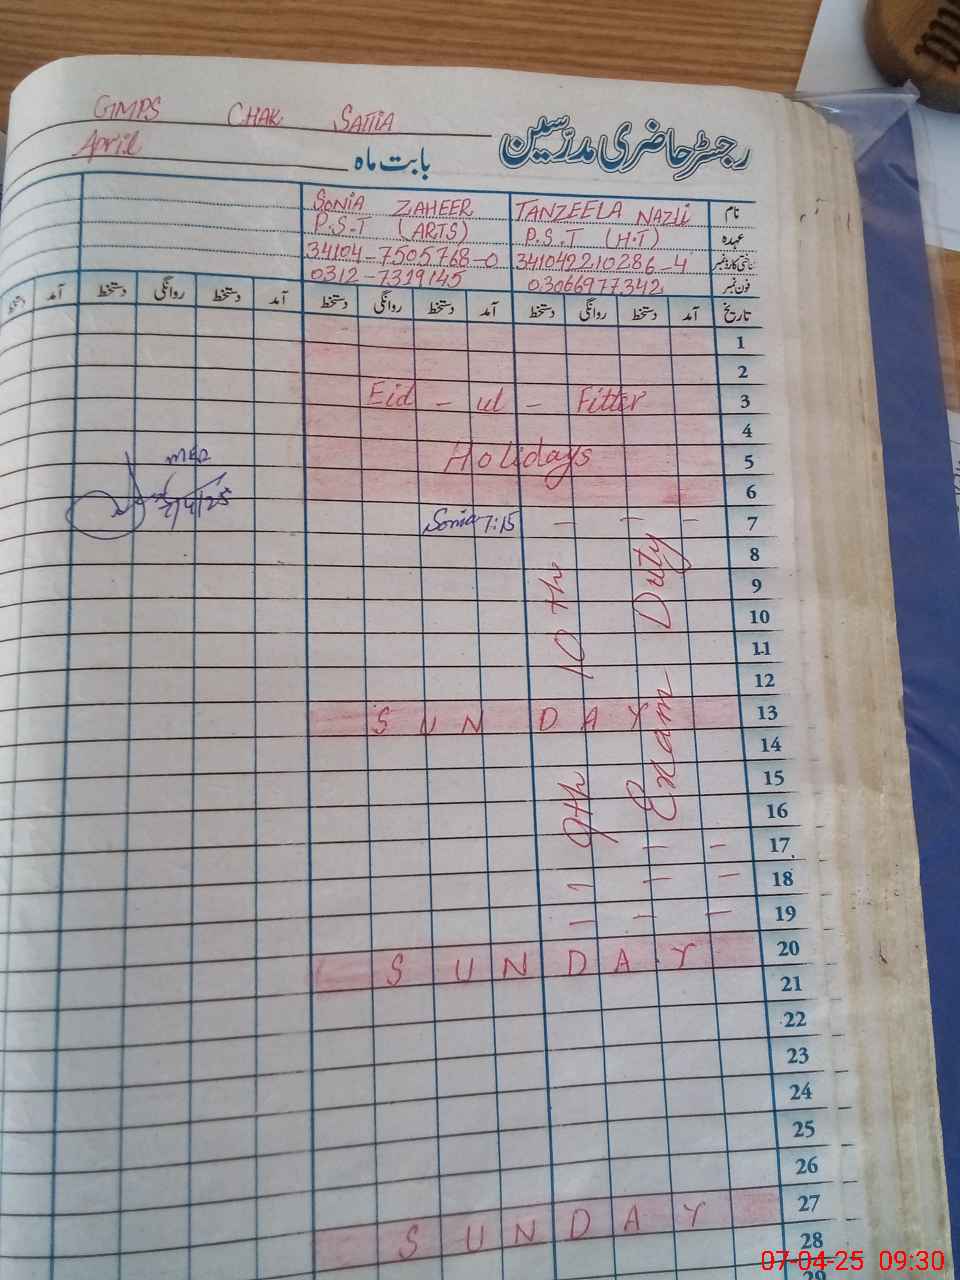 GMPS CHAK SATTIA
رجسٹر حاضری مدرّسین
April
بابت ماہ
نام TANZEELA NAZLI SONIA ZAHEER
عہدہ P.S.T (H.T) P.S.T (ARTS)
شناختی کارڈ نمبر 341042210286-4 34104-7505768-0
فون نمبر 03066977342 0312-7319145
تاریخ آمد دستخط روانگی دستخط آمد دستخط روانگی دستخط آمد دستخط روانگی دستخط آمد دستخط
1
2
3 Eid - ul - Fitter
4
5 Holidays
6
MEA
7/4/25
7 Sonia 7:15
8
9
10
11
12
9th 10th
Exam Duty
13 SUNDAY
14
15
16
17
18
19
20 SUNDAY
21
22
23
24
25
26
27 SUNDAY
28
29
07-04-25 09:30